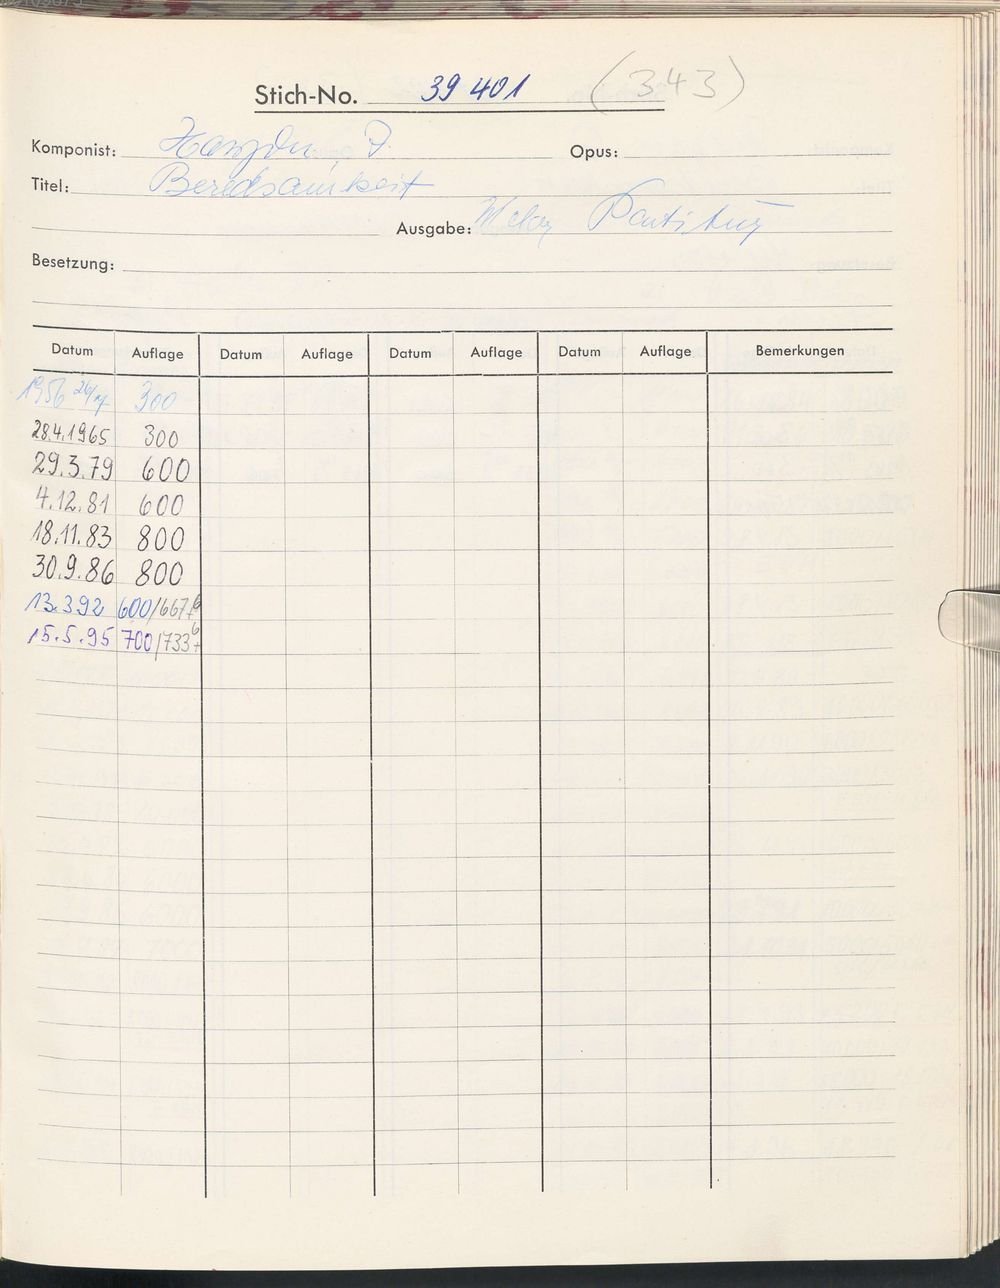 Stich-No. 39 401 (343)
Komponist: Haydn, J. Opus:
Titel: Beredsamkeit
Ausgabe: Partitur
Besetzung:
Datum Auflage Datum Auflage Datum Auflage Datum Auflage Bemerkungen
1956 300
28.4.1965 300
29.3.79 600
4.12.81 600
18.11.83 800
30.9.86 800
13.3.92 600/667
15.5.95 700/733